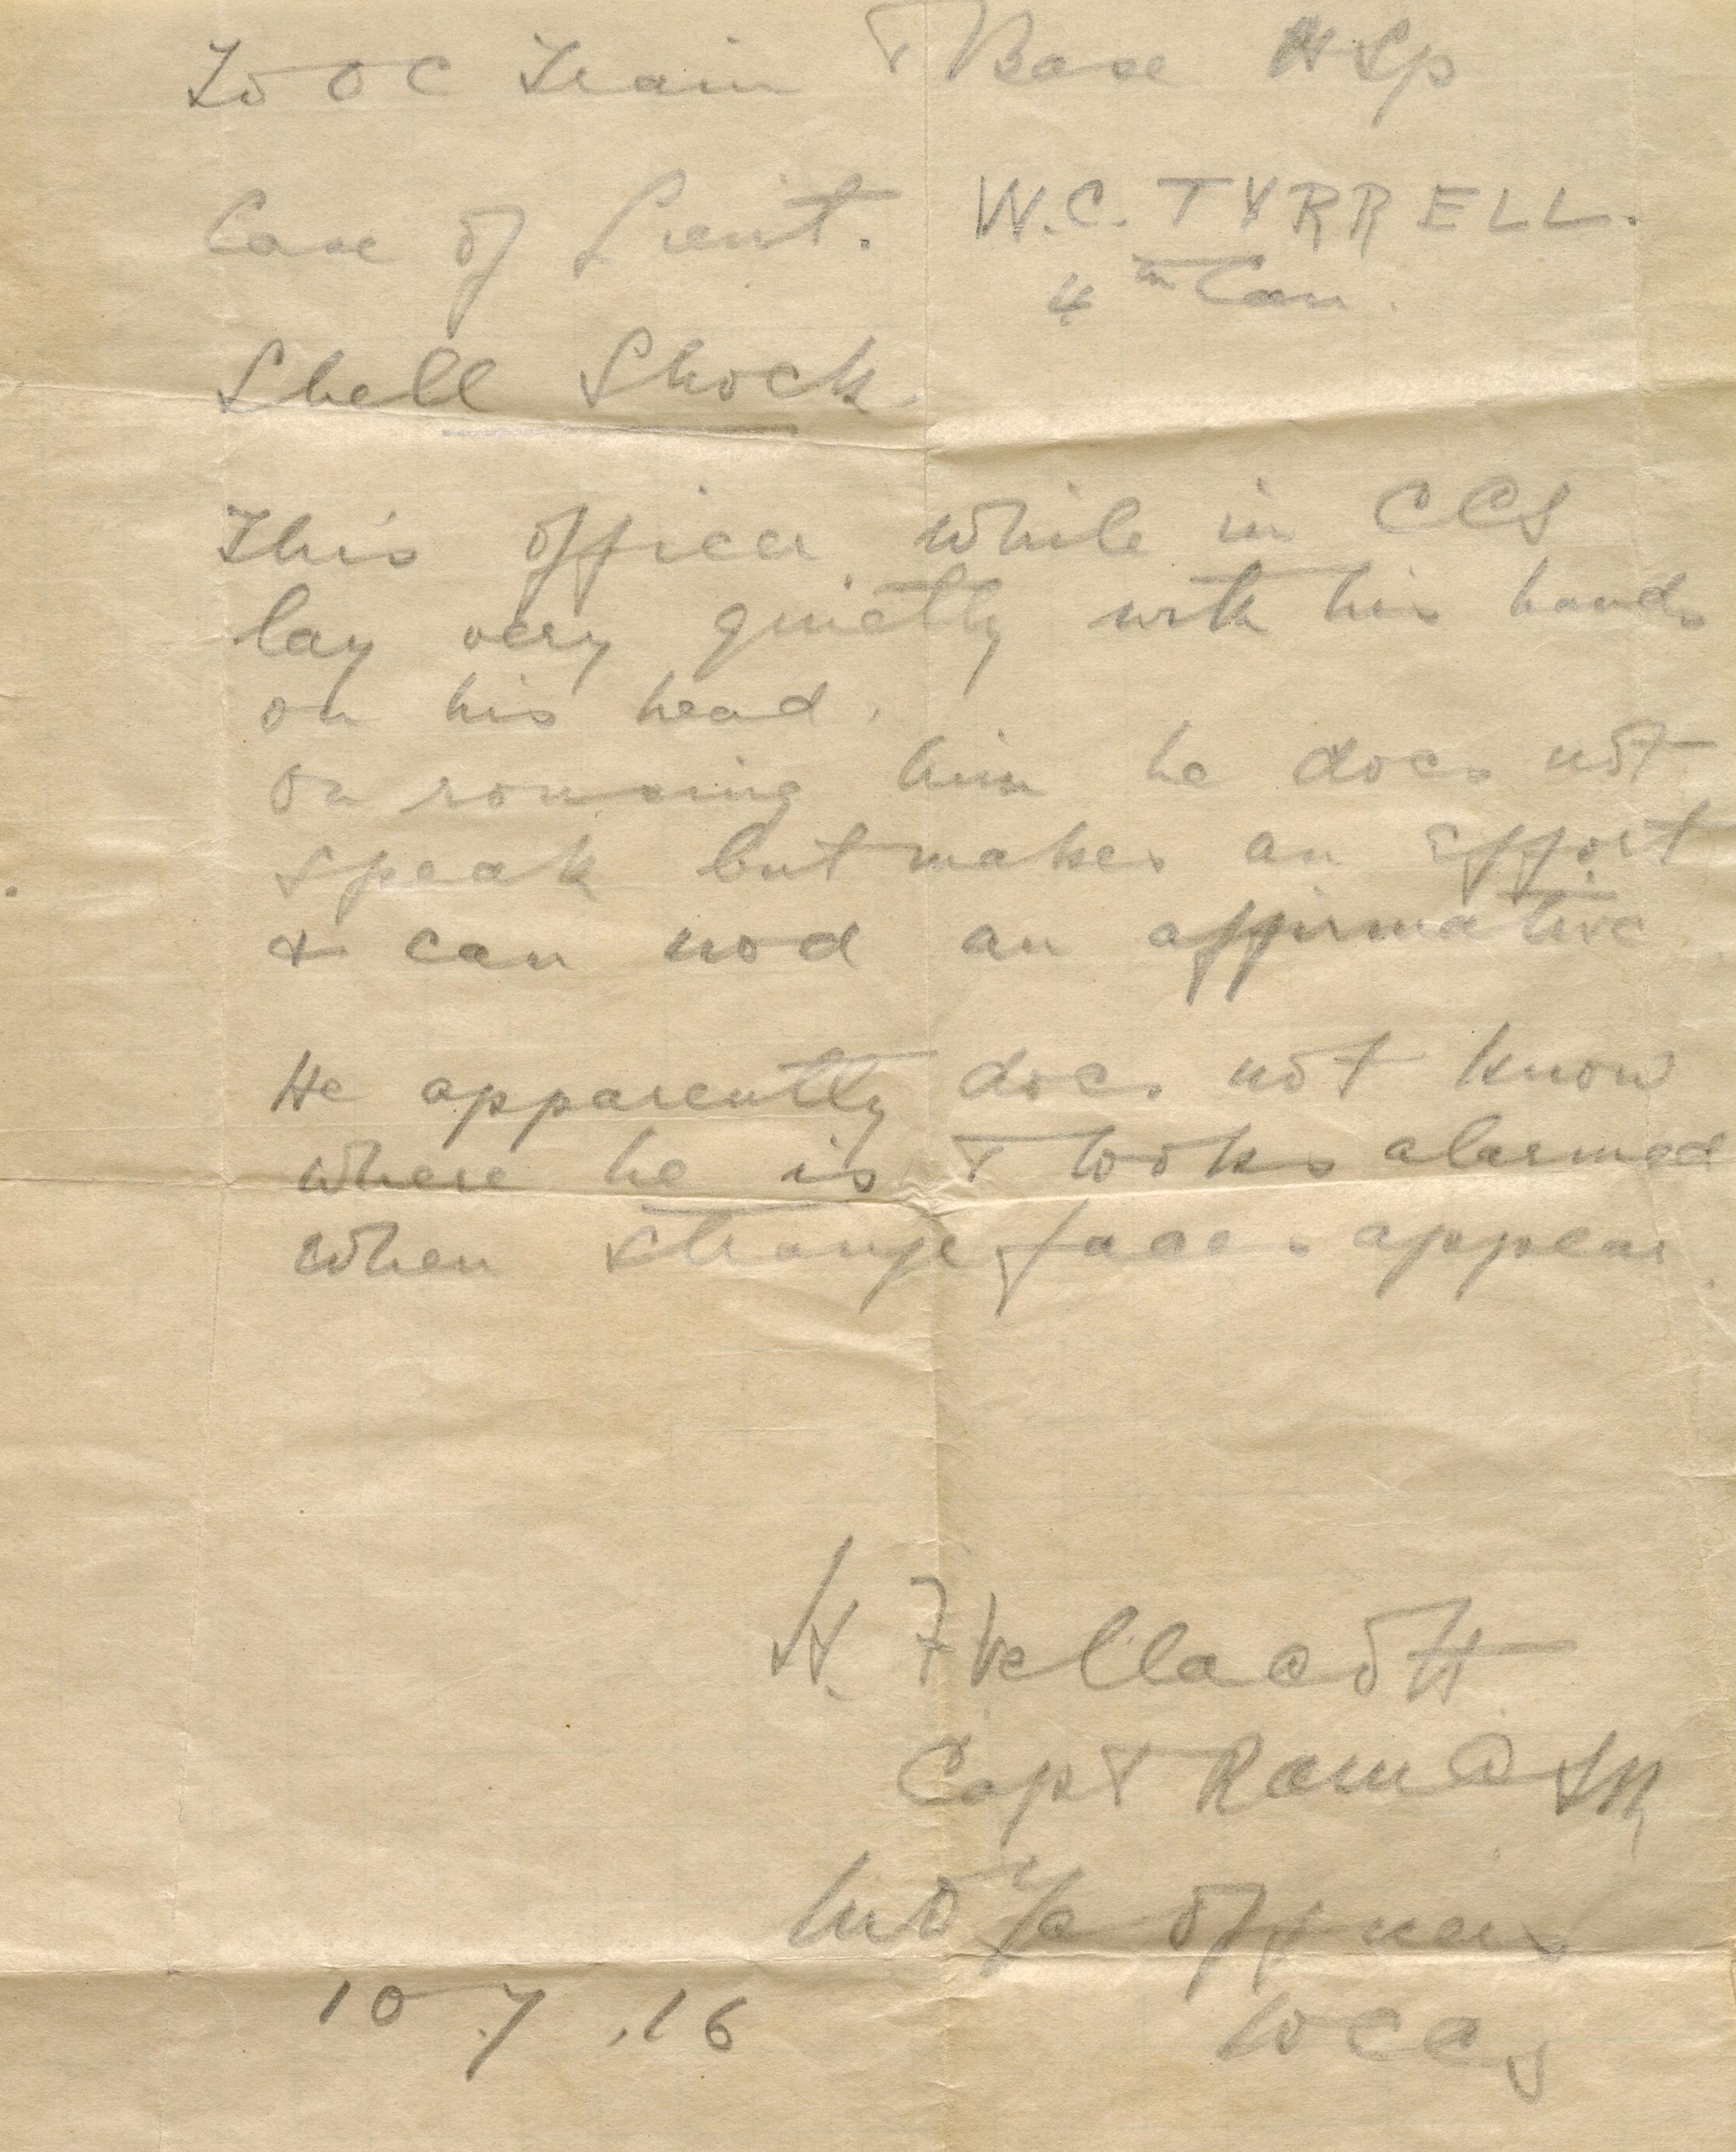 To OC Train & Base Hsp
Case of Lieut. W.C. TYRRELL.
4th Can.
Shell Shock.
This officer while in CCS
lay very quietly with his hands
on his head.
On rousing him he does not
speak but makes an effort
& can nod an affirmative
He apparently does not know
where he is & looks alarmed
when strange faces appear.
H. F Vellacott
Capt RAMC SR
MO i/c Officers
CCS
10.7.16